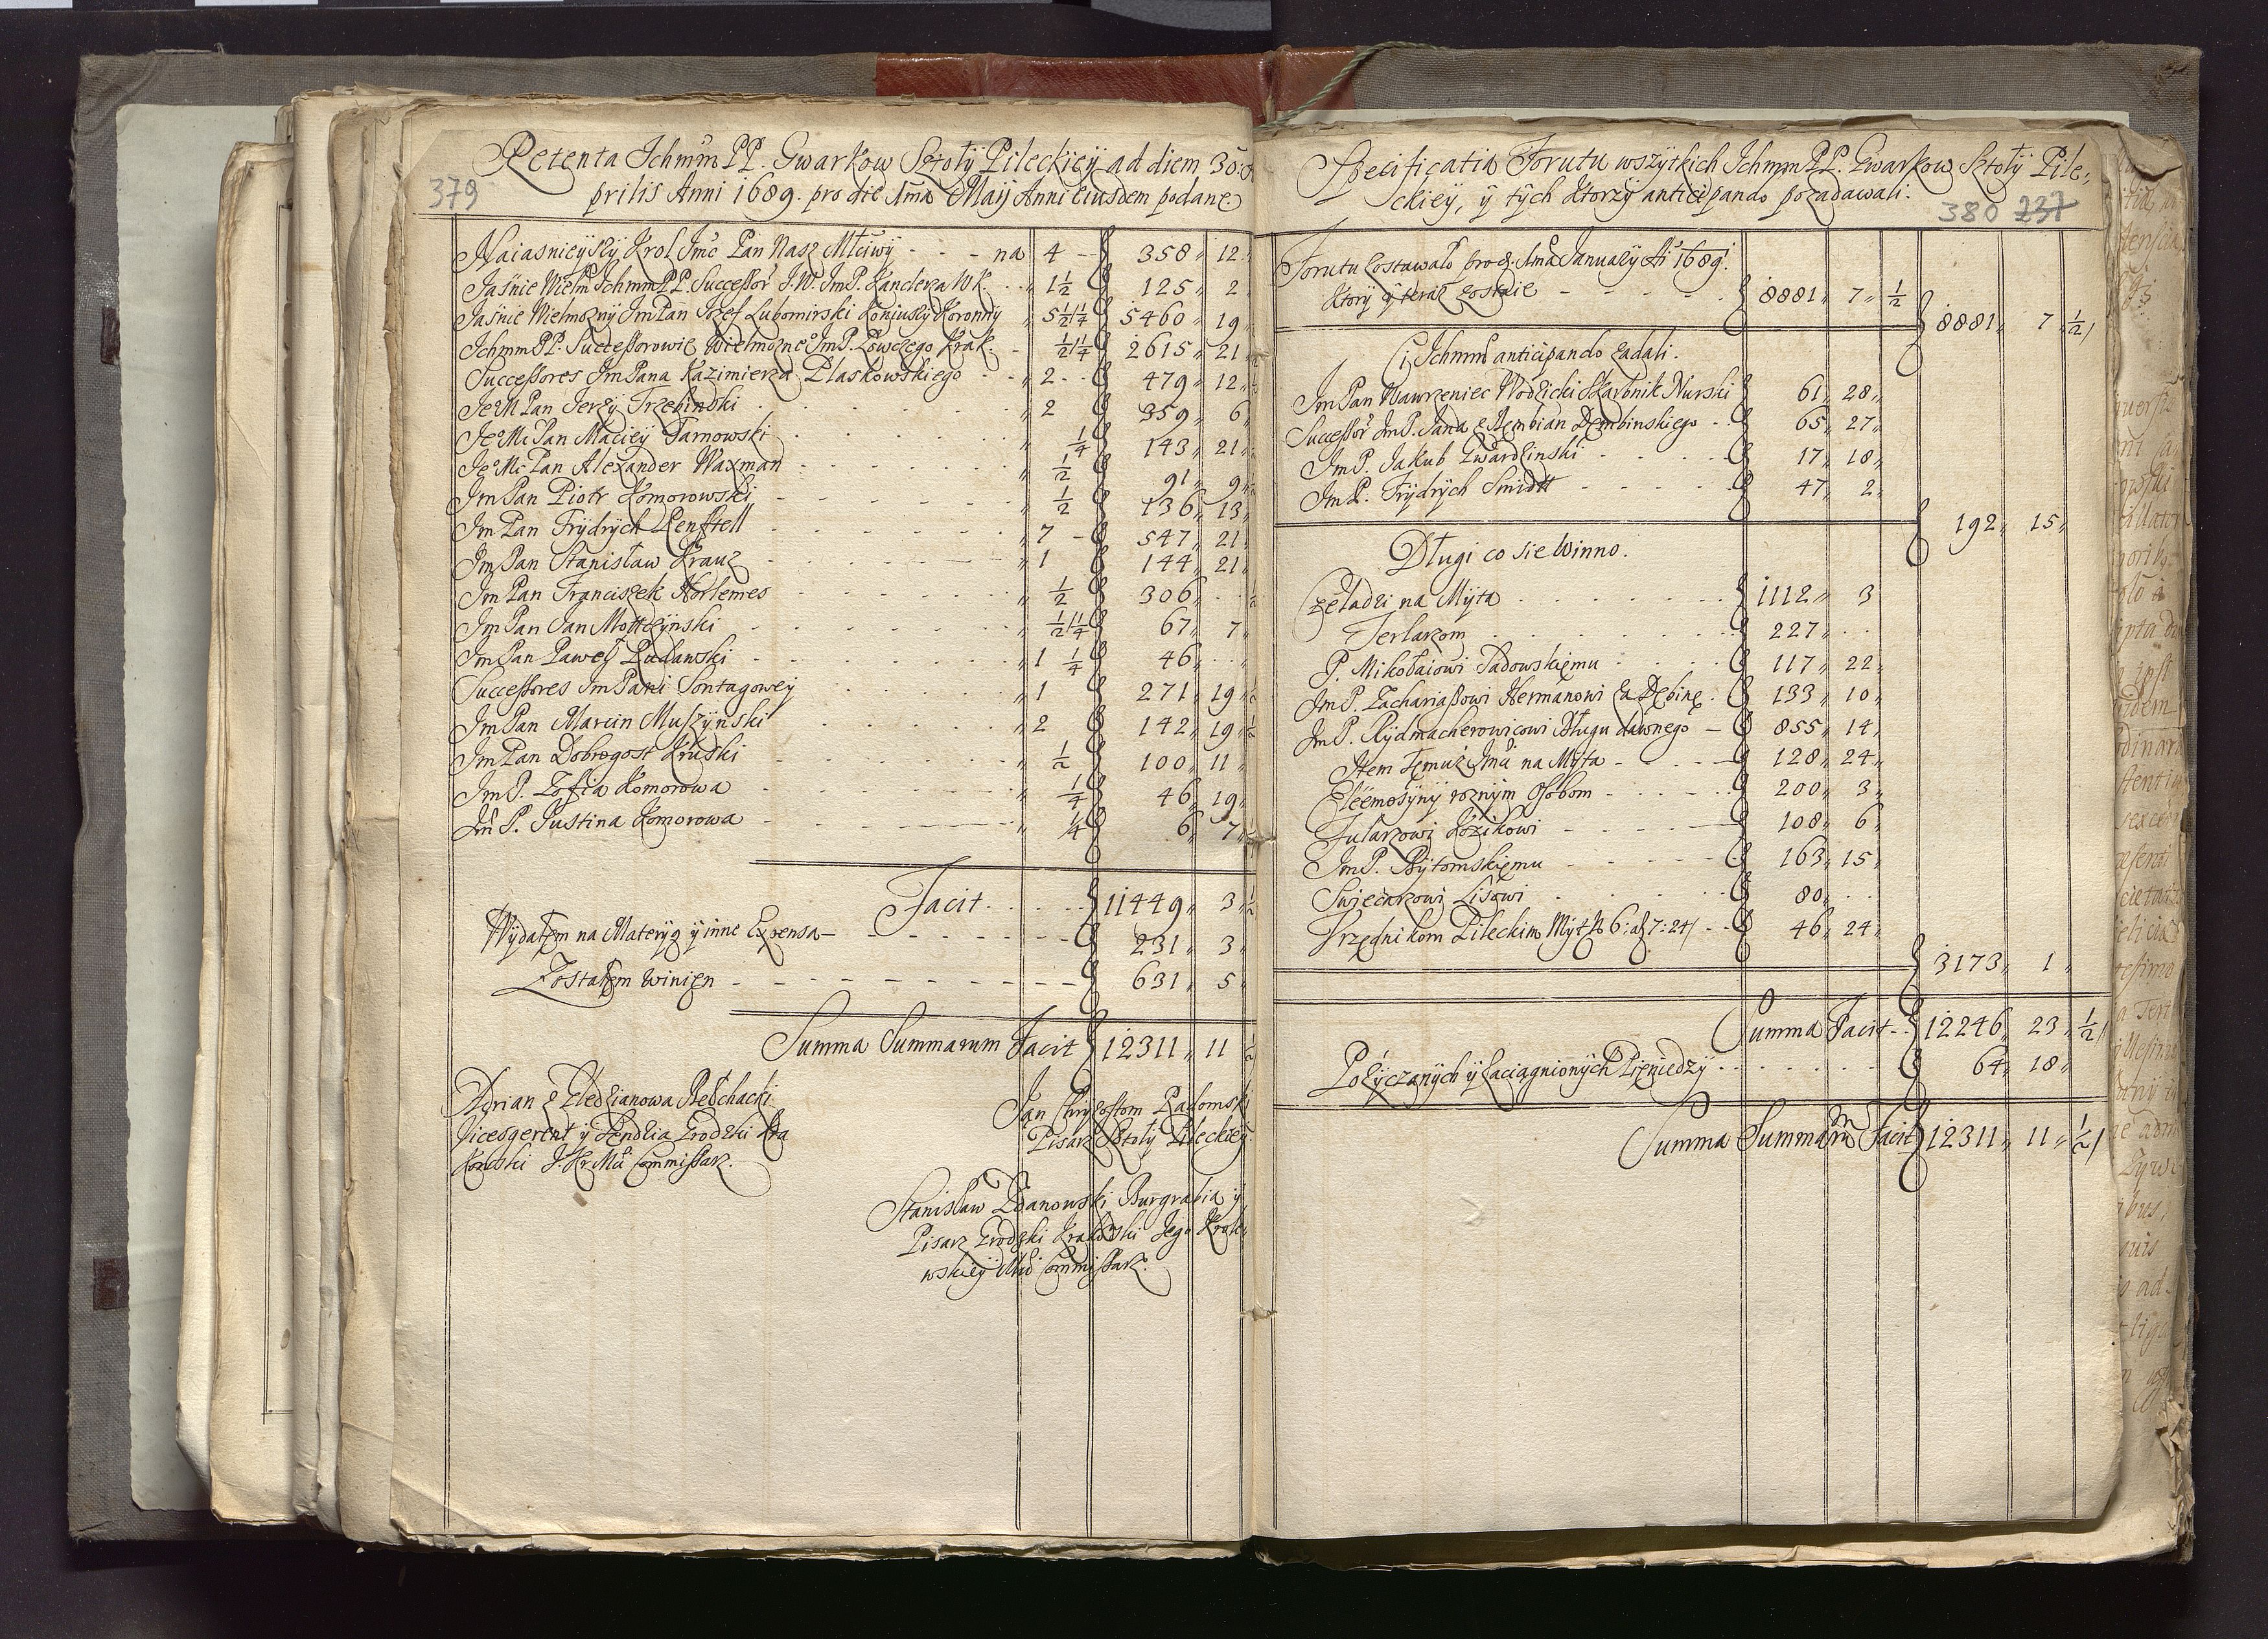 379
Retenta Ichmm PP. Gwarkow Sztoły Pileckiey ad diem 30 A
prilis Anni 1689. pro die 1ma Maij Anni eiusdem podane
Naiasnieyszy Krol Imc Pan Nasz Młciwy - - - na 4 358 12
Jaśnie Wielm. Ichmm PP. Successor J. W. Im P. Kanclerza W K. 1 1/2 125 2
Jaśnie Wielmozny Im Pan Jozef Lubomirski Koniuszy Koronny 5 1/2 1/4 5460 19
Ichmm PP. Successorowie Wielmozne Im P. Łowczego Krak. 1/2 1/4 2615 21
Successores Im Pana Kazimierza Płaskowskiego 2 479 12
Je M Pan Jerzy Trzebinski 2 359 6
Je Mc Pan Maciey Tarnowski 1/4 143 21
Je Mc Pan Alexander Waxman 1/2 91 9
Im Pan Piotr Komorowski 1/2 136 13
Im Pan Frydrych Renftell 7 547 21
Im Pan Stanisław Krauz 1 144 21
Im Pan Franciszek Hortemes 1/2 306
Im Pan Jan Mottczynski 1/2 1/4 67 7
Im Pan Paweł Rudawski 1 1/4 46
Successores Im Pani Sontagowey 1 271 19
Im Pan Marcin Muszynski 2 142 19 1/2
Im Pan Dobrogost Kruski 1/2 100 11
Im P. Zofia Komorowa 1/4 46 19
Im P. Justina Komorowa 1/4 6 7
Facit 11449 3 1/2
Wydałem na Materyą y inne Expensa 231 3
Zostałem winien 631 5
Summa Summarum Facit 12311 11 1/2
Adrian z Bełchacki
Vicesgerent y Sendzia Grodzki Kra
kowski J. Kr. Mci Commissarz.
Jan Chryzostom Radomsk
Pisarz Sztoły Pileckiey
Stanisław Zdanowski Burgrabia y
Pisarz Grodzki Krakowski Jego Krole
wskiey Mci Commissarz.
Specificatia Forutu wszytkich Ichmm PP. Gwarkow Sztoły Pile,
ckiey, y tych ktorzy anticipando pozadawali.
380 237
Forutu zostawało pro d. 1ma January Ai 1689.
ktory y teraz zostaie 8881 7 1/2
8881 7 1/2
Ci Ichmm anticipando zadali.
Im Pan Wawrzeniec Wodzicki Skarbnik Nurski 61 28
Successor Im P. Jana z Dembian Dembinskiego 65 27
Im P. Jakub Gwardzinski 17 18
Im P. Frydrych Smidtt 47 2
192 15
Długi co sie winno.
Czeladzi na Myta 1112 3
Ferlarzom 227
P. Mikołaiowi Sadowskiemu 117 22
Im P. Zachariaszowi Hermanowi za Dębinę 133 10
Im P. Rydmacherowicowi Długu dawnego 855 14
Item Temuż Imci na Myta 128 24
Eleemosyny roznym Osobom 200 3
Fularzowi Kozikowi 108 6
Im P. Bytomskiemu 163 15
Swiecarzowi Lisowi 80
Vrzędnikom Pileckim Myt N 6: a 7: 24 46 24
3173 1
Summa Facit 12246 23 1/2
Pożyczanych y zaciągnionych Pięniędzy 64 18
Summa Summarum Facit 12311 11 1/2